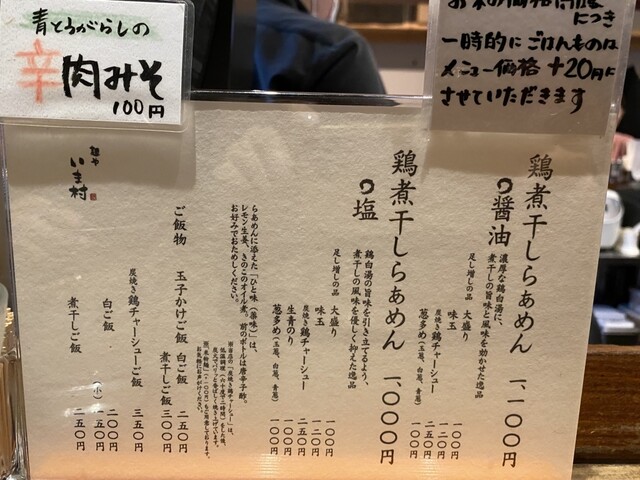 青とうがらしの
辛肉みそ
100円
お米の価格高騰
につき
一時的にごはんものは
メニュー価格+20円に
させていただきます
鶏煮干しらぁめん
醤油
一、一〇〇円
濃厚な鶏白湯に、
煮干しの旨味と風味を効かせた逸品
足し増しの品
大盛り 一〇〇円
味玉 一二〇円
炭焼き鶏チャーシュー 二五〇円
葱多め(玉葱、白葱、青葱) 一〇〇円
鶏煮干しらぁめん
塩
一、〇〇〇円
鶏白湯の旨味を引き立てるよう、
煮干しの風味を優しく抑えた逸品
足し増しの品
大盛り 一〇〇円
味玉 一二〇円
炭焼き鶏チャーシュー 二五〇円
生青のり 一五〇円
葱多め(玉葱、白葱、青葱) 一〇〇円
らぁめんに添えた「ひと味(薬味)」は、
レモン生姜、きのこのオイル煮。前のボトルは唐辛子酢。
お好みでおためしください。
ご飯物
玉子かけご飯
白ご飯 二五〇円
煮干しご飯 三〇〇円
炭焼き鶏チャーシューご飯 三五〇円
白ご飯 二〇〇円
(小) 一五〇円
煮干しご飯 二五〇円
麺や
いま村